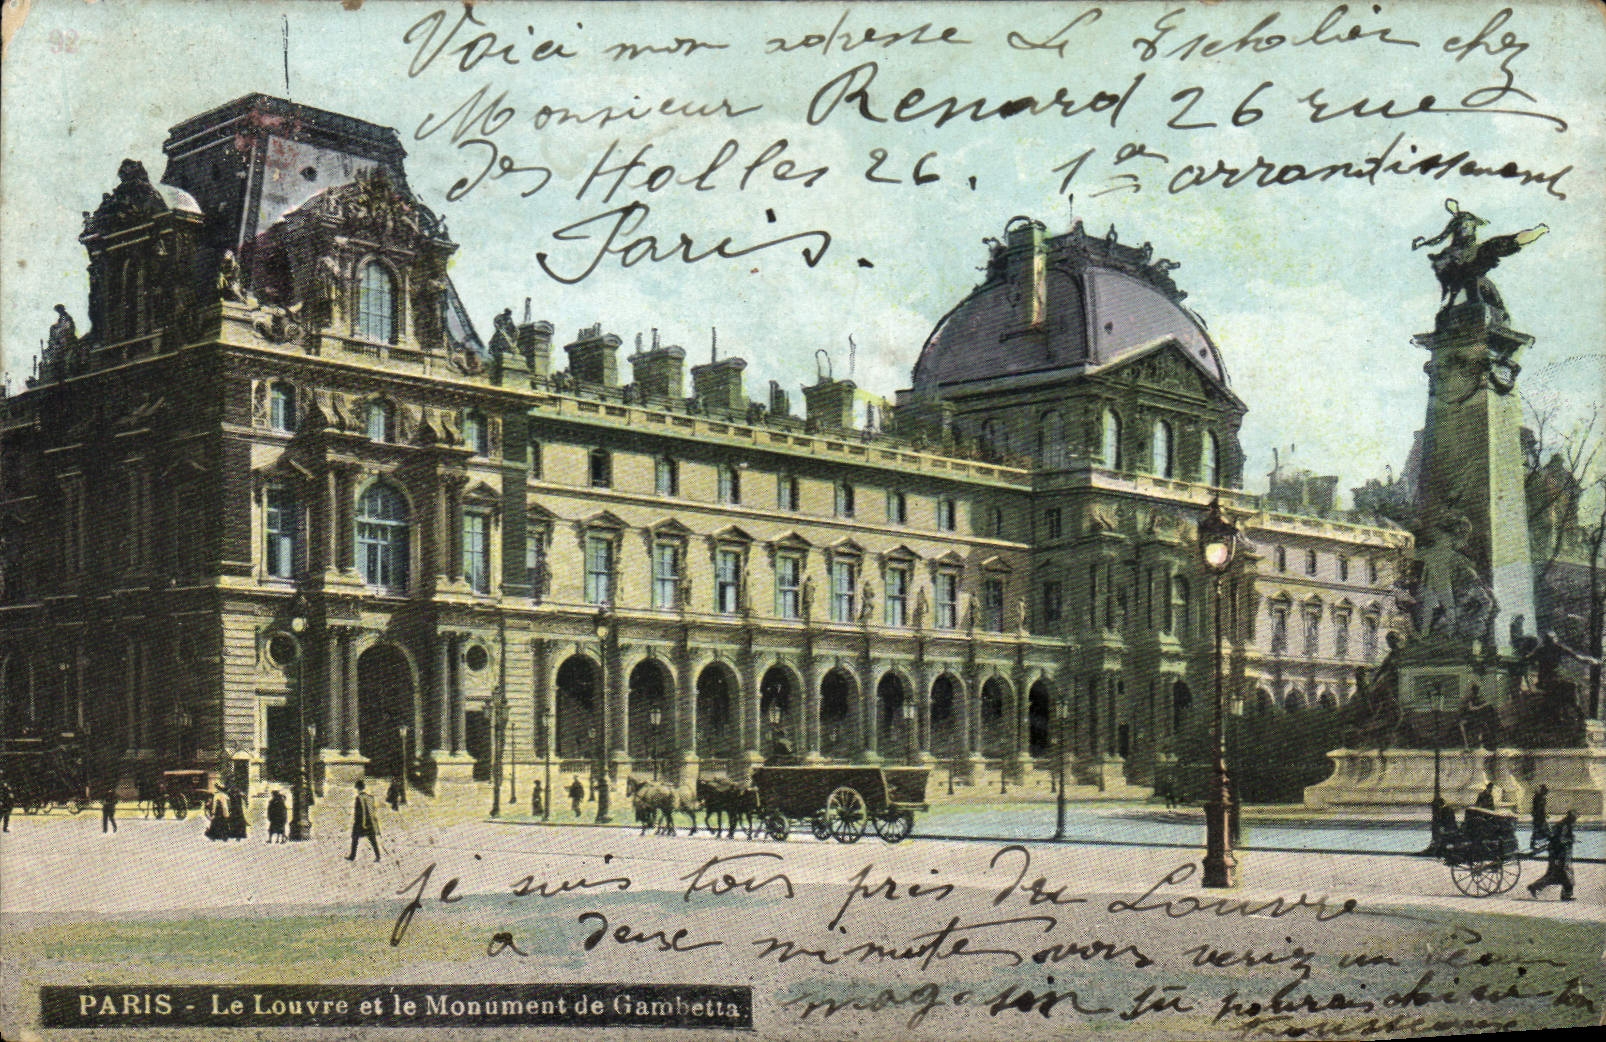 32
Voici mon adresse L. Escholier chez
Monsieur Renard 26 rue
des Halles 26. 1er arrondissement
Paris.
je suis tous pris du Louvre
a deux minutes vous veriez un
magasin tu pourais choisir ton
trousseau
PARIS - Le Louvre et le Monument de Gambetta.